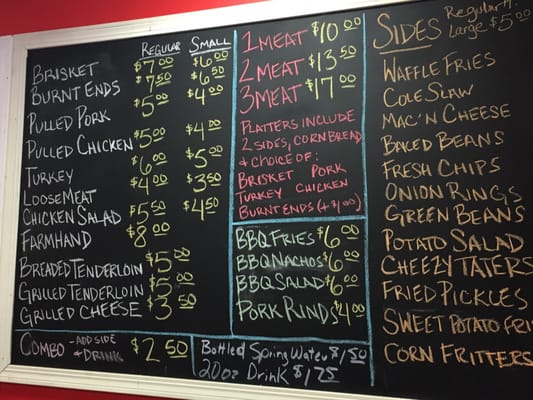 Regular Small
Brisket $7.00 $6.00
Burnt Ends $7.50 $6.50
Pulled Pork $5.00 $4.00
Pulled Chicken $5.00 $4.00
Turkey $6.00 $5.00
Loosemeat $4.00 $3.50
Chicken Salad $5.50 $4.50
Farmhand $8.00
Breaded Tenderloin $5.00
Grilled Tenderloin $5.00
Grilled Cheese $3.50
Combo - Add Side & Drink $2.50
1 Meat $10.00
2 Meat $13.50
3 Meat $17.00
Platters Include
2 Sides, Cornbread
& Choice of:
Brisket Pork
Turkey Chicken
Burnt Ends (+$1.00)
BBQ Fries $6.00
BBQ Nachos $6.00
BBQ Salad $6.00
Pork Rinds $4.00
Bottled Spring Water $1.50
20oz Drink $1.75
Sides Regular
Large $5.00
Waffle Fries
Cole Slaw
Mac'n Cheese
Baked Beans
Fresh Chips
Onion Rings
Green Beans
Potato Salad
Cheezy Taters
Fried Pickles
Sweet Potato Fri
Corn Fritters